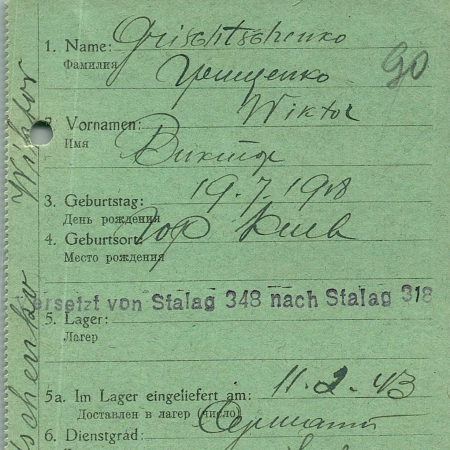 1. Name: Grischtschenko
Фамилия Грищенко
90
Wiktor
2. Vornamen:
Имя Виктор
3. Geburtstag: 19.7.1918
День рождения
4. Geburtsort: Гор Киев
Место рождения
ersetzt von Stalag 348 nach Stalag 318
5. Lager:
Лагерь
5a. Im Lager eingeliefert am: 11.2.43
Доставлен в лагерь (число)
6. Dienstgrad: Сержант
Wiktor
schenko